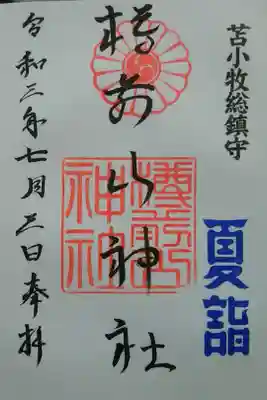 苫小牧総鎮守
夏詣
樽前山神社
樽前山神社
令和三年七月三日奉拝